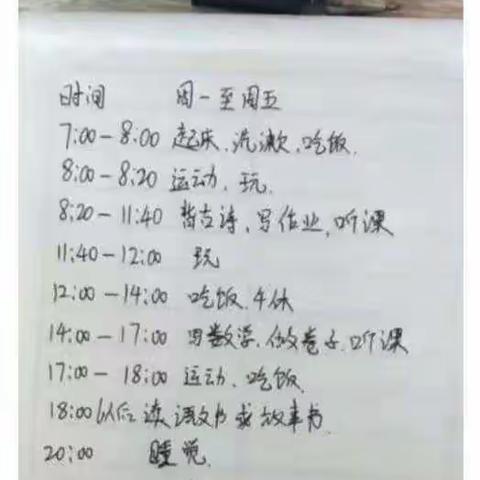 时间 周一至周五
7:00-8:00 起床、洗漱、吃饭.
8:00-8:20 运动、玩.
8:20-11:40 背古诗、写作业,听课
11:40-12:00 玩
12:00-14:00 吃饭.午休
14:00-17:00 写数学、做卷子.听课
17:00-18:00 运动、吃饭.
18:00以后 读语文书或故事书.
20:00 睡觉.